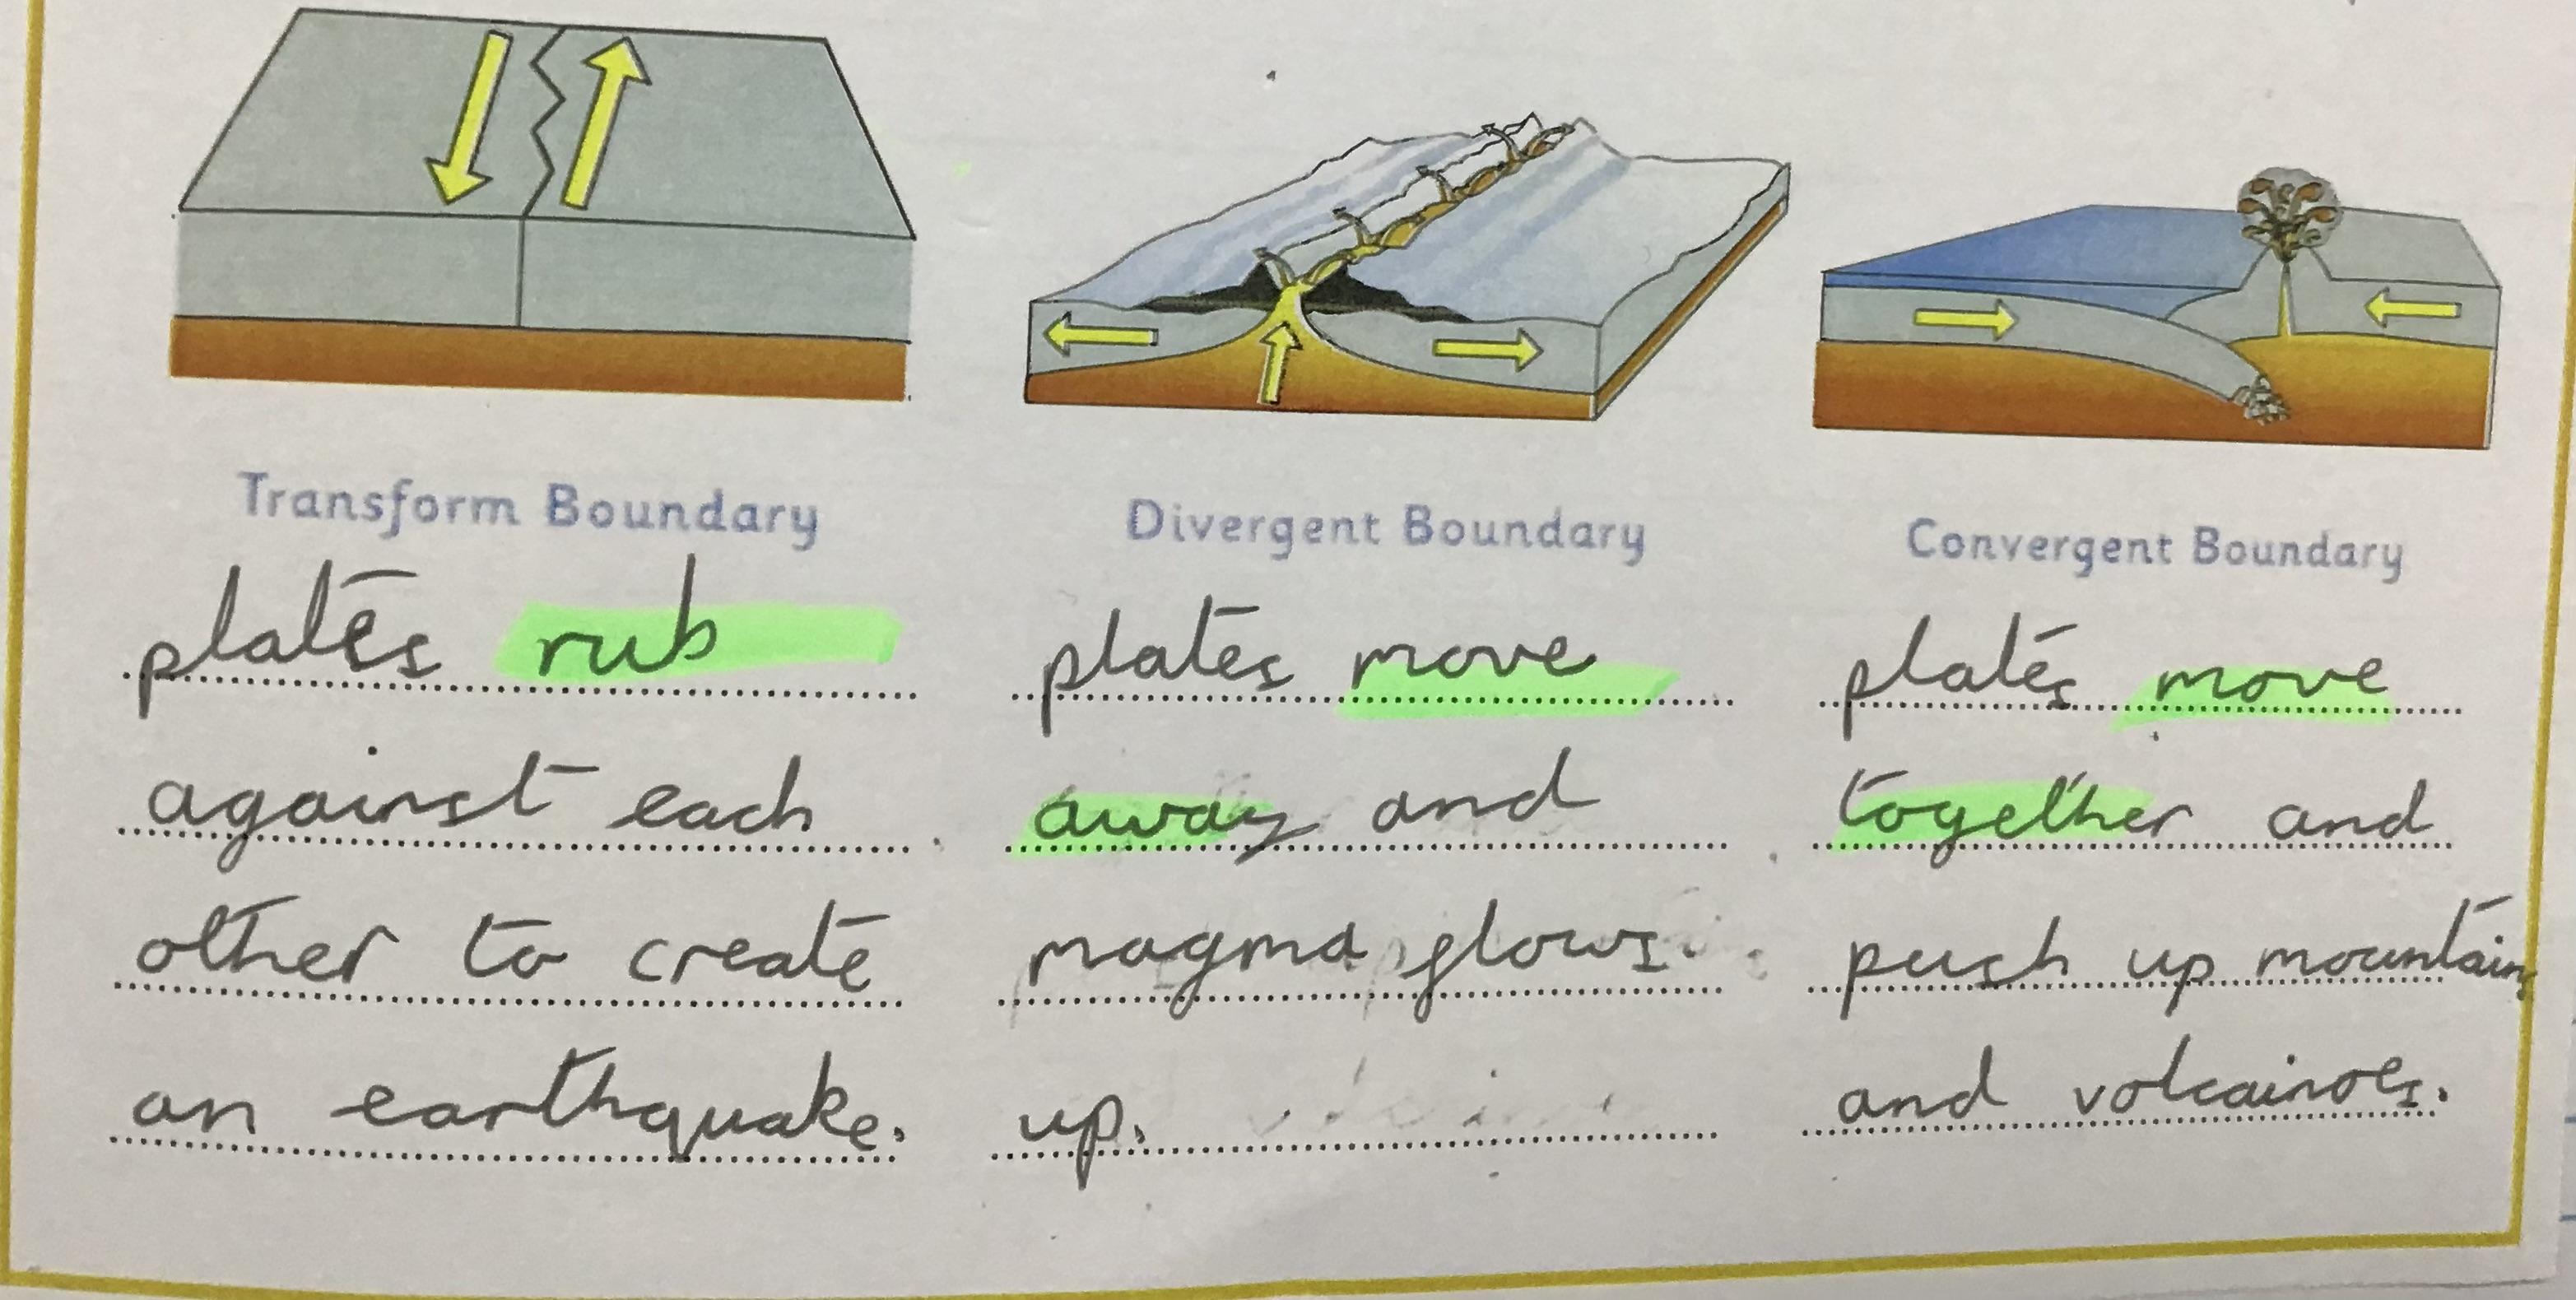 Transform Boundary
plates rub
against each
other to create
an earthquake.
Divergent Boundary
plates move
away and
magma flows.
up.
Convergent Boundary
plates move
together and
push up mountains
and volcainoes.